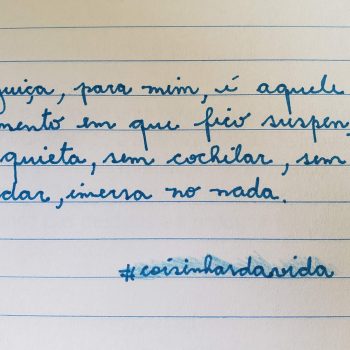 guiça, para mim, é aquele
mento em que fico suspen
quieta, sem cochilar, sem
dar, imersa no nada.
#coisinhasdavida